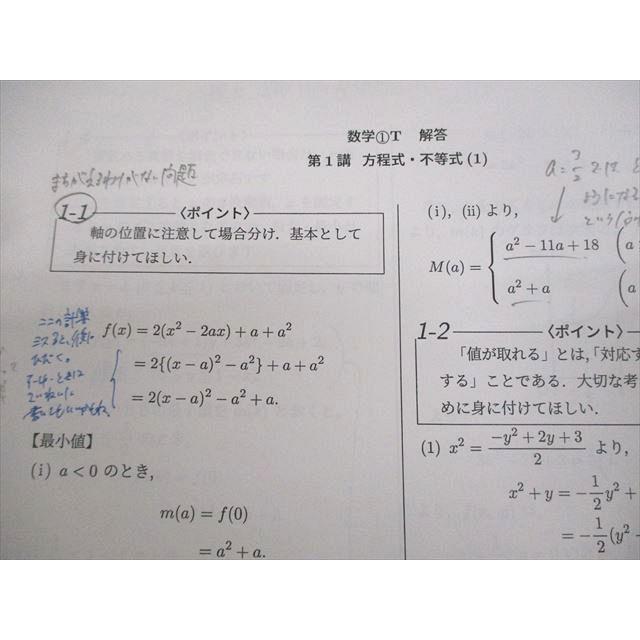 数学①T 解答
第1講 方程式・不等式(1)
まちがえるわけがない問題
1-1
〈ポイント〉
軸の位置に注意して場合分け．基本として
身に付けてほしい．
ここの計算
f(x) = 2(x² − 2ax) + a + a²
= 2{(x − a)² − a²} + a + a²
= 2(x − a)² − a² + a.
【最小値】
(i) a < 0 のとき，
m(a) = f(0)
= a² + a.
(i)，(ii) より，
M(a) = { a² − 11a + 18 (a
a² + a (a
1-2
〈ポイント〉
「値が取れる」とは，「対応す
する」ことである．大切な考
めに身に付けてほしい．
(1) x² = (−y² + 2y + 3)/2 より，
x² + y = −1/2 y² +
= −1/2 (y²